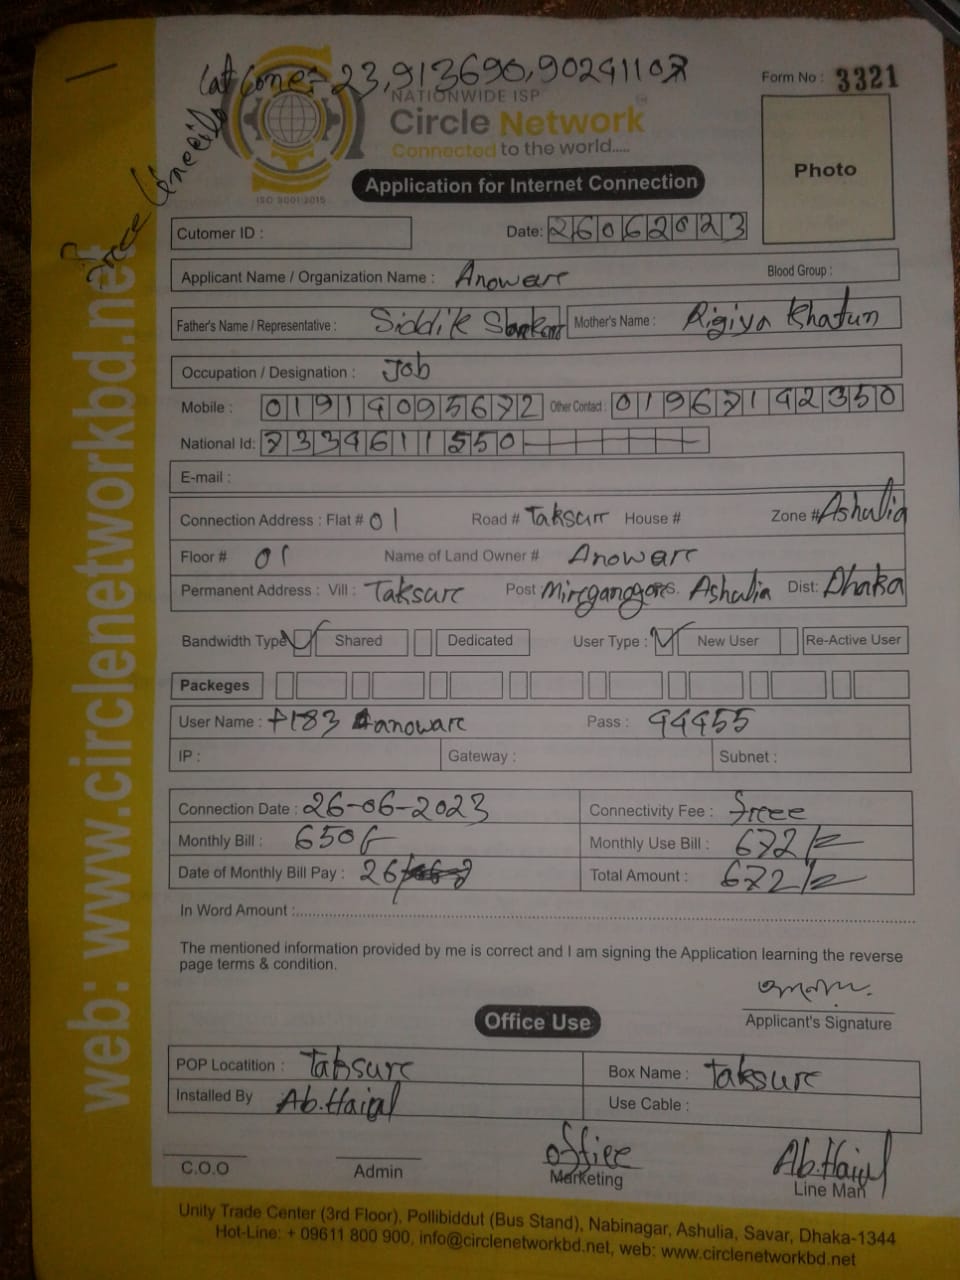 23,913690,90241107
Form No : 3321
NATIONWIDE ISP
Circle Network
Connected to the world.....
ISO 9001:2015
Photo
Application for Internet Connection
Cutomer ID :
Date: 26062023
Applicant Name / Organization Name : Anowarr
Blood Group :
Father's Name / Representative : Siddik
Mother's Name : Rigiya Khatun
Occupation / Designation : Job
Mobile : 01914095672 Other Contact : 01967192350
National Id: 7334611550
E-mail :
Connection Address : Flat # 01 Road # Taksurr House # Zone # Ashulia
Floor # 01 Name of Land Owner # Anowarr
Permanent Address : Vill : Taksurr Post P.S. Ashulia Dist: Dhaka
Bandwidth Type Shared Dedicated User Type : New User Re-Active User
Packeges
User Name : anowarr Pass : 94955
IP : Gateway : Subnet :
Connection Date : 26-06-2023 Connectivity Fee : Free
Monthly Bill : 650/- Monthly Use Bill : 672/=
Date of Monthly Bill Pay : 26 Total Amount : 672/=
In Word Amount :
The mentioned information provided by me is correct and I am signing the Application learning the reverse
page terms & condition.
Applicant's Signature
Office Use
POP Locatition : Taksurr Box Name : Taksurr
Installed By Ab.Haiul Use Cable :
Office Ab.Haiul
C.O.O Admin Marketing Line Man
Unity Trade Center (3rd Floor), Pollibiddut (Bus Stand), Nabinagar, Ashulia, Savar, Dhaka-1344
Hot-Line: + 09611 800 900, info@circlenetworkbd.net, web: www.circlenetworkbd.net
web: www.circlenetworkbd.net